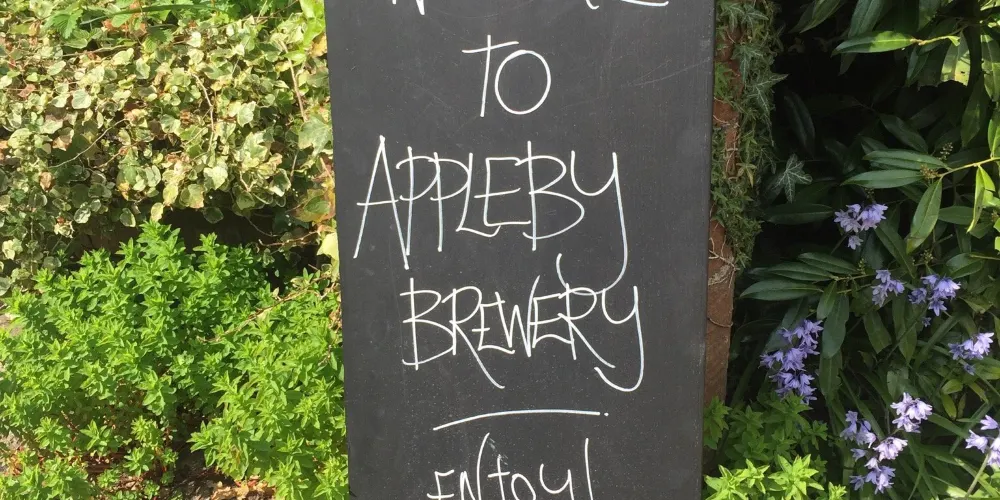 TO
APPLEBY
BREWERY
ENJOY!